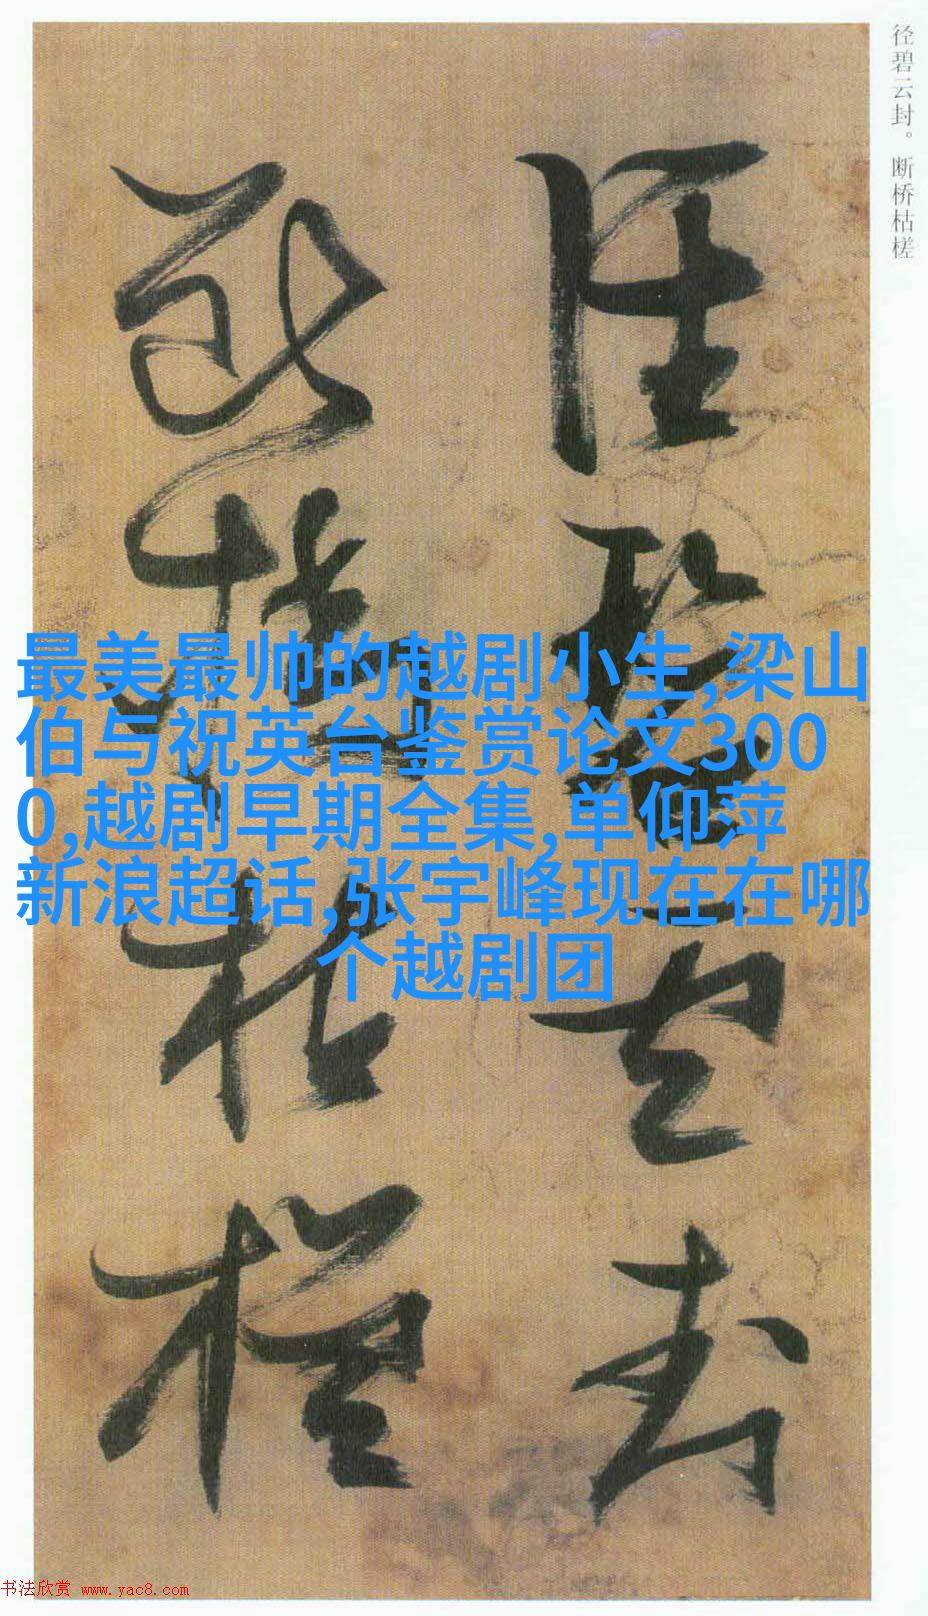 径碧云封。断桥枯槎
径碧云封
断桥枯槎
最美最帅的越剧小生,梁山
伯与祝英台鉴赏论文300
0,越剧早期全集,单仰萍
新浪超话,张宇峰现在在哪
个越剧团
书法欣赏 www.yac8.com